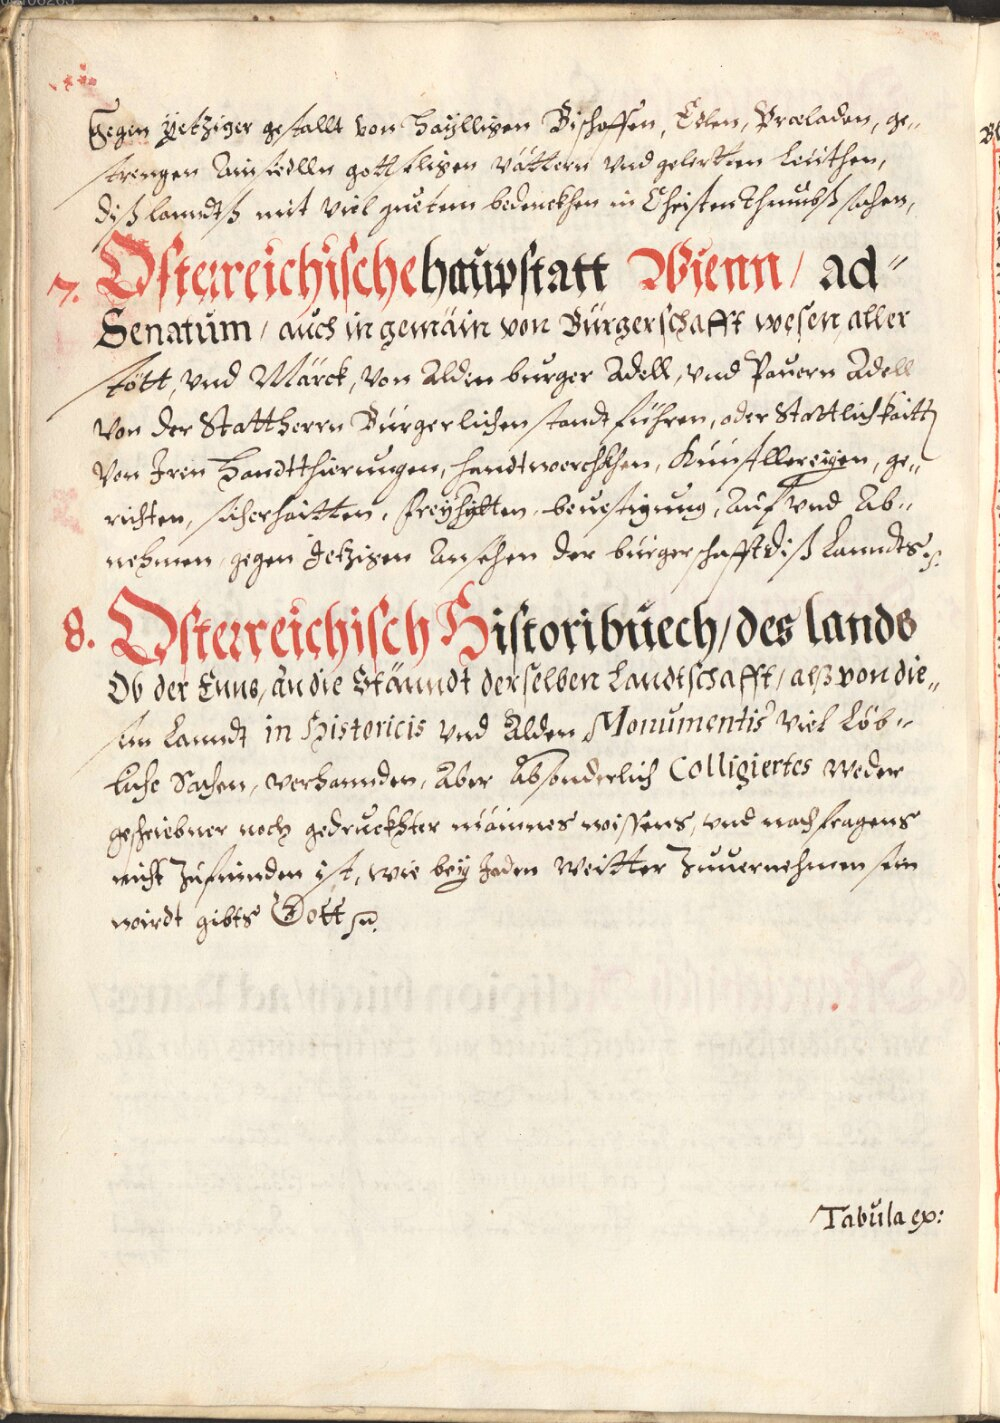 gegen yetziger gestallt von haylligen Bischoffen, Edlen, Prœladen, ge„
strengen Ainsidlln gottseligen vättern vnd gelertten Leüthen,
diß lanndtß mit viel guetem bedenckhen in Christenthumbß sachen,
7. Österreichische haupstatt Wienn / ad„
Senatum / auch in gemäin von Bürgerschafft wesen, aller
stött, vnd Märck, von Alden burger Adell, vnd Pauern Adell
von der Stattherrn Bürgerlichen standt führen, oder Stattlichkaitt
von Iren handtthierungen, handtwerchkhen, Künstllereyen, ge„
richten, sicherhaitten, freyhytten, beuestigung, Auf vnd Ab„
nehmen, gegen Jetzigen Ansehen der burgerschafft diß Lanndts
8. Österreichisch Historibuech / des lands
Ob der Enns, an die Stänndt derselben Landtschafft / alß von die„
sem Lanndt in Historicis vnd Alden Monumentis viel Löb„
liche Sachen, verhannden, Aber Absonderlich Colligiertes weder
geschriebner noch gedruckhter mäinnes wissens, vnd nachfragens
nicht Zufünden ist, wie bey Jeden weitter Zuuernehmen sein
wirdt gibts Gott
Tabula ex: